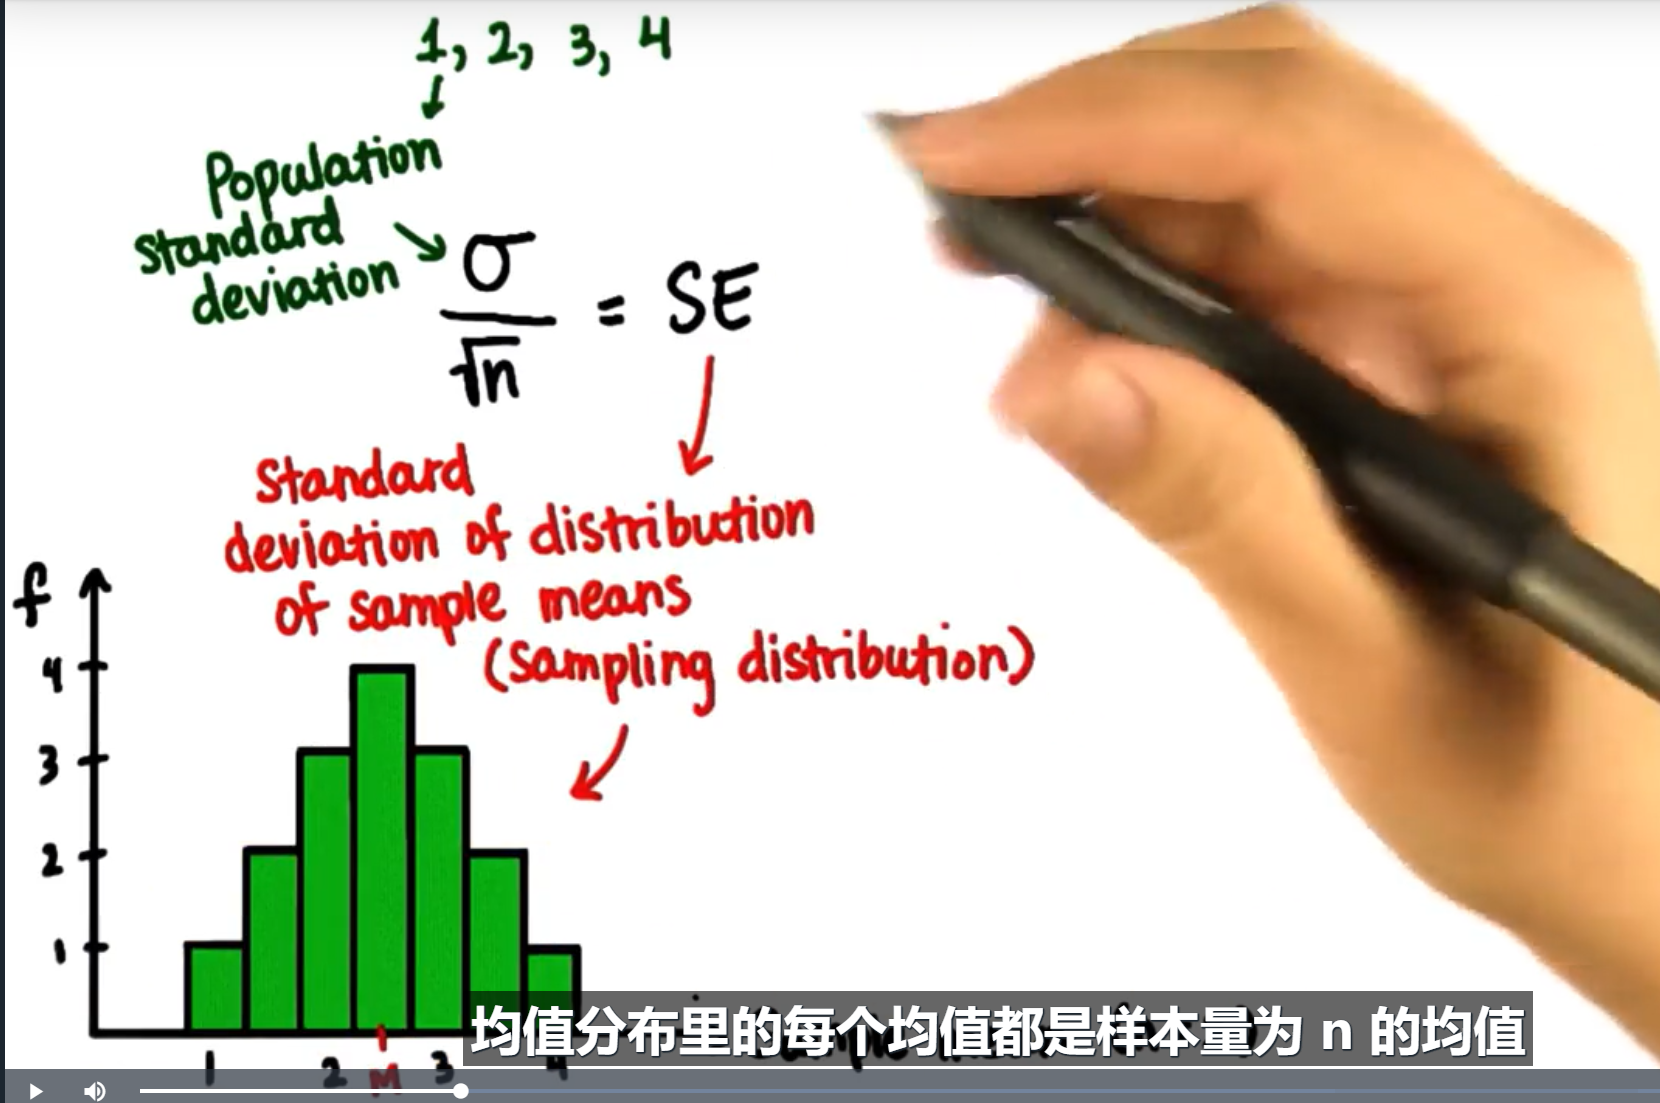 1, 2, 3, 4
Population
standard
deviation
σ
√n
= SE
Standard
deviation of distribution
of sample means
(sampling distribution)
f
4
3
2
1
1 2 M 3 4
均值分布里的每个均值都是样本量为 n 的均值